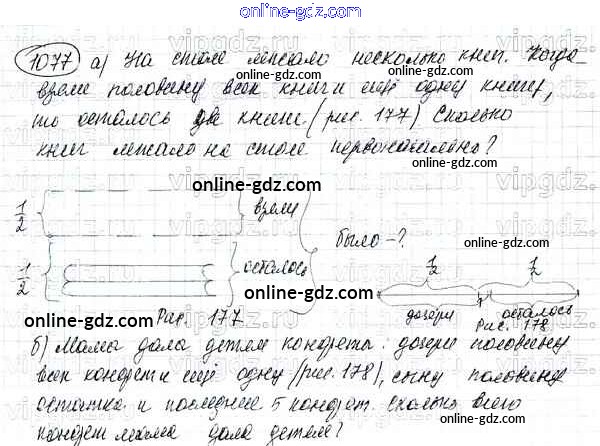 online-gdz.com
1077 а) На столе лежало несколько книг. Когда
online-gdz.com
взяли половину всех книг и ещё одну книгу,
то осталось две книги (рис. 177) Сколько
online-gdz.com
книг лежало на столе первоначально?
vipgdz.ru
online-gdz.com
1/2 взяли
было-?
online-gdz.com
1/2 осталось
1/2 1/2
online-gdz.com
дочери осталось
Рис. 177
Рис. 178
online-gdz.com
б) Мама дала детям конфеты: дочери половину
всех конфет и ещё одну (рис. 178), сыну половину
online-gdz.com
остатка и последние 5 конфет. сколько всего
конфет мама дала детям?
online-gdz.com